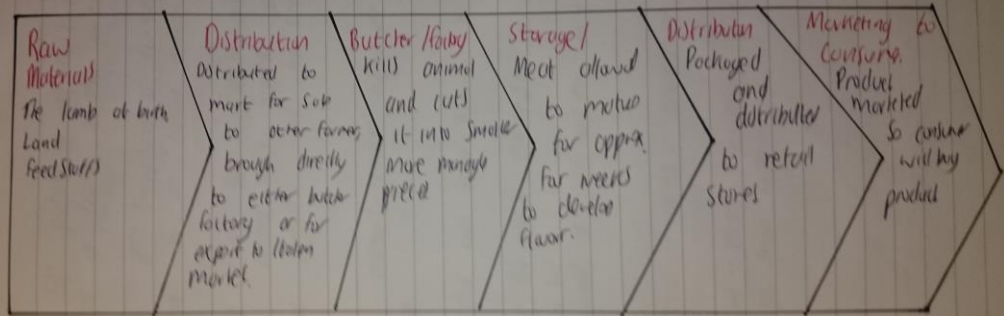 Raw
Materials
The lamb at birth
Land
Feed Stuffs
Distribution
Distributed to
mart for sale
to other farmers,
brough directly
to either butcher
factory or for
export to Italian
market.
Butcher /factory
Kills animal
and cuts
it into smaller
more
piece
Storage/
Meat allowed
to mature
for approx.
four weeks
to develop
flavor.
Distribution
Packaged
and
distributed
to retail
stores
Marketing to
Consume.
Product
marketed
so consumer
will buy
product